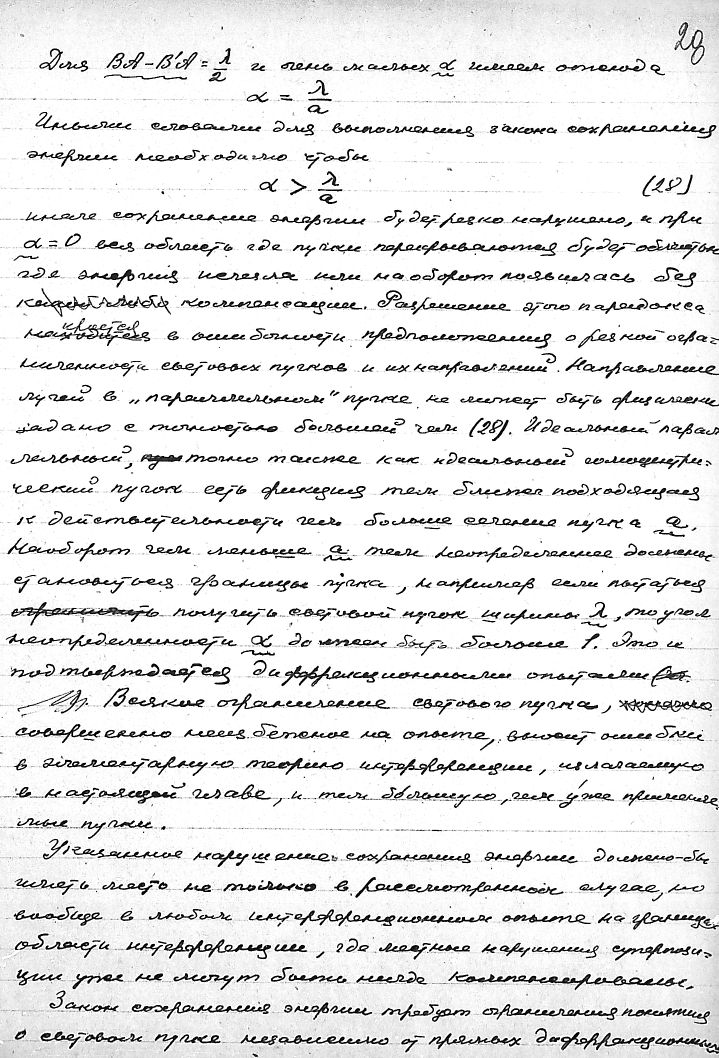 29
Для BA – B'A = λ/2 и очень малых α имеем отсюда
α = λ/a
Иными словами для выполнения закона сохранения
энергии необходимо чтобы
α > λ/a (28)
иначе сохранение энергии будет резко нарушено, и при
α = 0 вся область где пучки перекрываются будет областью
где энергия исчезла или наоборот появилась без
компенсации. Разрешение этого парадокса
кроется в ошибочности предположения о резкой огра-
ниченности световых пучков и их направлений. Направление
лучей в „параллельном" пучке не может быть физически
задано с точностью большей чем (28). Идеальный парал
лельный, точно также как идеальный гомоцентри-
ческий пучок есть фикция тем ближе подходящая
к действительности чем больше сечение пучка a.
Наоборот чем меньше a тем неопределеннее должны
становиться границы пучка, например если пытаться
получить световой пучок ширины λ, то угол
неопределенности α должен быть больше 1. Это и
подтверждается диффракционными опытами
Всякое ограничение светового пучка,
совершенно неизбежное на опыте, вносит ошибки
в элементарную теорию интерференции, излагаемую
в настоящей главе, и тем бо́льшую, чем у́же применяе
мые пучки.
Указанное нарушение сохранения энергии должно-бы
иметь место не только в рассмотренном случае, но
вообще в любом интерференционном опыте на границе
области интерференции, где местные нарушения суперпози-
ции уже не могут быть нигде компенсированы.
Закон сохранения энергии требует ограничения понятия
о световом пучке независимо от прямых диффракционных